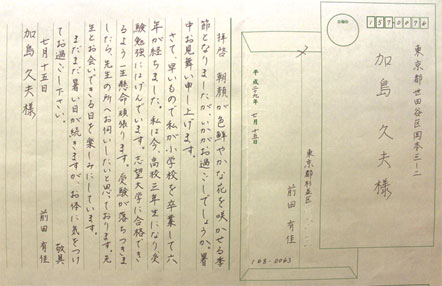 拝啓 朝顔が色鮮やかな花を咲かせる季
節となりましたが、いかがお過ごしでしょうか。暑
中お見舞い申し上げます。
さて、早いもので私が小学校を卒業して六
年が経ちました。私は今、高校三年生になり受
験勉強にはげんでいます。志望大学に合格でき
るよう一生懸命頑張ります。受験が落ちつきま
したら、先生の所へお伺いしたいと思っております。先
生とお会いできる日を楽しみにしています。
まだまだ暑い日が続きますが、お体に気をつけ
てお過ごし下さい。
敬具
七月十五日
前田有佳
加島久夫様
157-0076
東京都世田谷区岡本三-二
加島久夫様
〆
平成二九年 七月十五日
東京都杉並区
前田有佳
168-0063